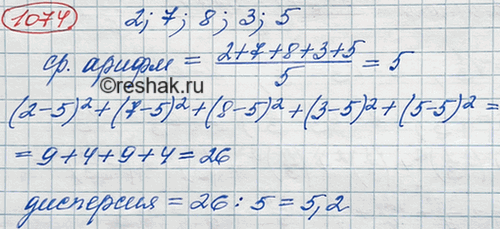 1074 2; 7; 8; 3; 5
ср. арифм = (2+7+8+3+5)/5 = 5
©reshak.ru
(2-5)²+(7-5)²+(8-5)²+(3-5)²+(5-5)² =
= 9+4+9+4=26
дисперсия = 26 : 5 = 5,2